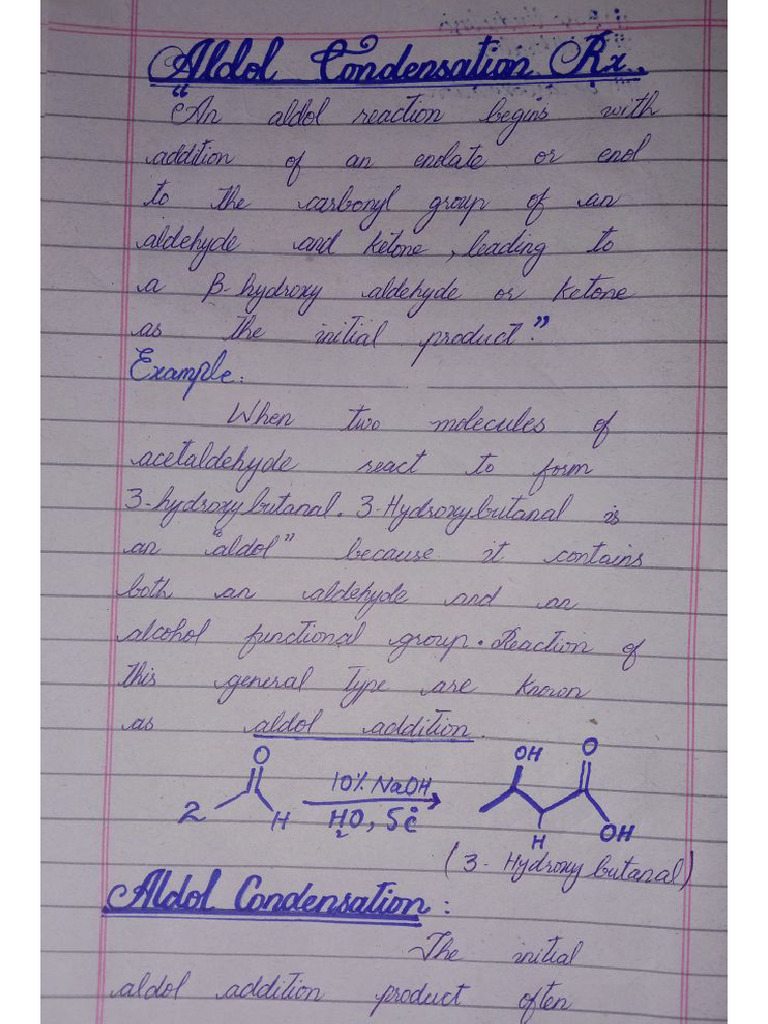 Aldol Condensation Rx.
"An aldol reaction begins with
addition of an enolate or enol
to the carbonyl group of an
aldehyde and ketone, leading to
a β-hydroxy aldehyde or ketone
as the initial product."
Example:
When two molecules of
acetaldehyde react to form
3-hydroxybutanal. 3-Hydroxybutanal is
an "aldol" because it contains
both an aldehyde and an
alcohol functional group. Reaction of
this general type are known
as aldol addition.
O OH O
2 H 10% NaOH
H₂O, 5°C
H OH
(3-Hydroxy butanal)
Aldol Condensation:
The initial
aldol addition product often